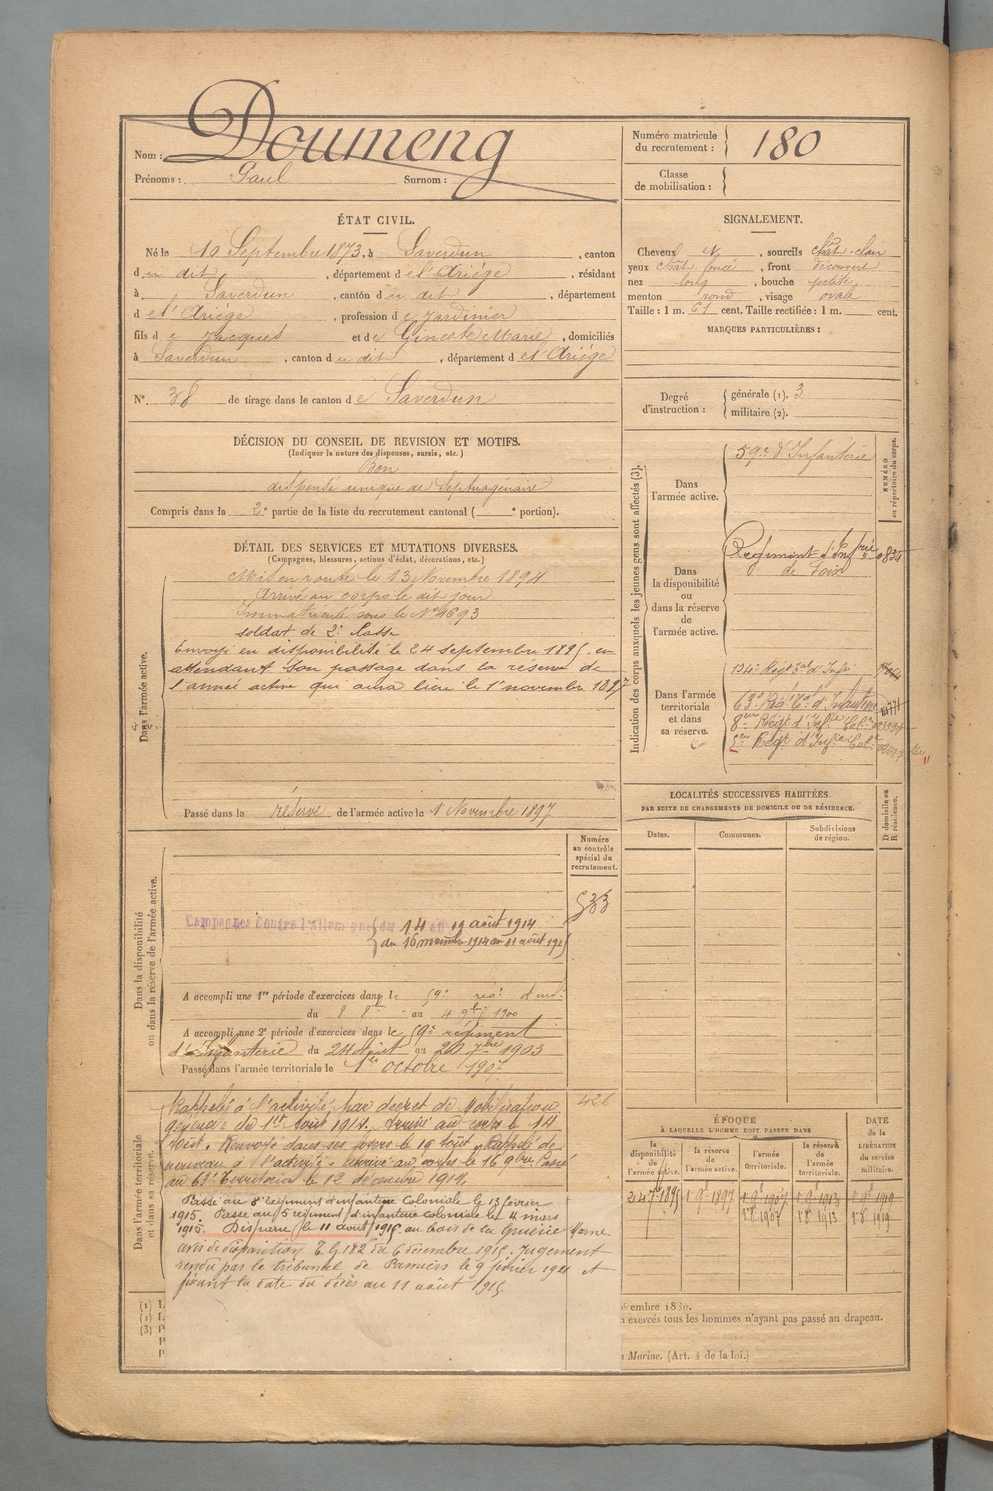 Nom : Doumeng
Prénoms : Paul Surnom :
Numéro matricule du recrutement : 180
Classe de mobilisation :
ÉTAT CIVIL.
Né le 10 Septembre 1873, à Saverdun, canton
du dit, département de l'Ariége, résidant
à Saverdun, canton du dit, département
de l'Ariége, profession de Jardinier
fils de Jacques et de Gineste Marie, domiciliés
à Saverdun, canton du dit, département de l'Ariége
N° 38 de tirage dans le canton de Saverdun
SIGNALEMENT.
Cheveux et, sourcils chât-clair
yeux chât. foncé, front découvert
nez long, bouche petite
menton rond, visage ovale
Taille : 1 m. 61 cent. Taille rectifiée : 1 m. cent.
MARQUES PARTICULIÈRES :
Degré d'instruction : générale (1). 3
militaire (2).
DÉCISION DU CONSEIL DE REVISION ET MOTIFS.
(Indiquer la nature des dispenses, sursis, etc.)
Bon
dispensé unique de Septuagénaire
Compris dans la 2e partie de la liste du recrutement cantonal ( e portion).
DÉTAIL DES SERVICES ET MUTATIONS DIVERSES.
(Campagnes, blessures, actions d'éclat, décorations, etc.)
Dans l'armée active.
Mis en route le 13 Novembre 1894
Arrivé au corps le dit jour
Immatriculé sous le N° 4693
soldat de 2e classe
Envoyé en disponibilité le 24 septembre 1895. en
attendant son passage dans la réserve de
l'armée active qui aura lieu le 1er novembre 1897
Passé dans la réserve de l'armée active le 1 Novembre 1897
Indication des corps auxquels les jeunes gens sont affectés (3).
NUMÉRO au répertoire du corps.
Dans l'armée active.
59e d'Infanterie
Dans la disponibilité ou dans la réserve de l'armée active.
Régiment d'Infrie 0834
de Foix
Dans l'armée territoriale et dans sa réserve.
134e Régt tal d'Infie
63e Rég. Tal d'Infanterie
8eme Régt d'Infie Colle
5eme Régt d'Infie Colle
LOCALITÉS SUCCESSIVES HABITÉES
PAR SUITE DE CHANGEMENTS DE DOMICILE OU DE RÉSIDENCE.
D domicile ou R résidence.
Dates. Communes. Subdivisions de région.
Dans la disponibilité ou dans la réserve de l'armée active.
Numéro au contrôle spécial du recrutement.
533
Campagnes Contre l'Allemagne du 14 au 19 août 1914
du 16 novembre 1914 au 11 août 1915
A accompli une 1re période d'exercices dans le 59e régt d'inf.
du 8 8bre au 4 9bre 1900
A accompli une 2e période d'exercices dans le 59e régiment
d'Infanterie du 24 Août au 20 7bre 1903
Passé dans l'armée territoriale le 1er octobre 1907
Dans l'armée territoriale et dans sa réserve.
426
Rappelé à l'activité par décret de Mobilisation
générale du 1er Août 1914. Arrivé au corps le 14
Août. Renvoyé dans ses foyers le 19 Août. Rappelé de
nouveau à l'activité. Arrivé au corps le 16 9bre. Passé
au 63e Territorial le 12 décembre 1914.
Passé au 8e régiment d'infanterie Coloniale le 13 février
1915. Passé au 5 régiment d'infanterie coloniale le 4 mars
1915. Disparu le 11 août 1915. au bois de la Gruerie Marne.
avis de disparition T.G. 182 du 6 décembre 1915. Jugement
rendu par le tribunal de Pamiers le 9 février 1921 et
fixant la date du décès au 11 août 1915.
ÉPOQUE
À LAQUELLE L'HOMME DOIT PASSER DANS
la disponibilité de l'armée active. la réserve de l'armée active. l'armée territoriale. la réserve de l'armée territoriale.
DATE de la LIBÉRATION du service militaire.
24 7bre 1895 1 9e 1897 1 9e 1907 1 9e 1913 1 9e 1919
1 8e 1907 1 8e 1913 1 8e 1919
(1) L
(2) L
(3) P
écembre 1889.
n exercés tous les hommes n'ayant pas passé au drapeau.
Marine. (Art. 4 de la loi.)